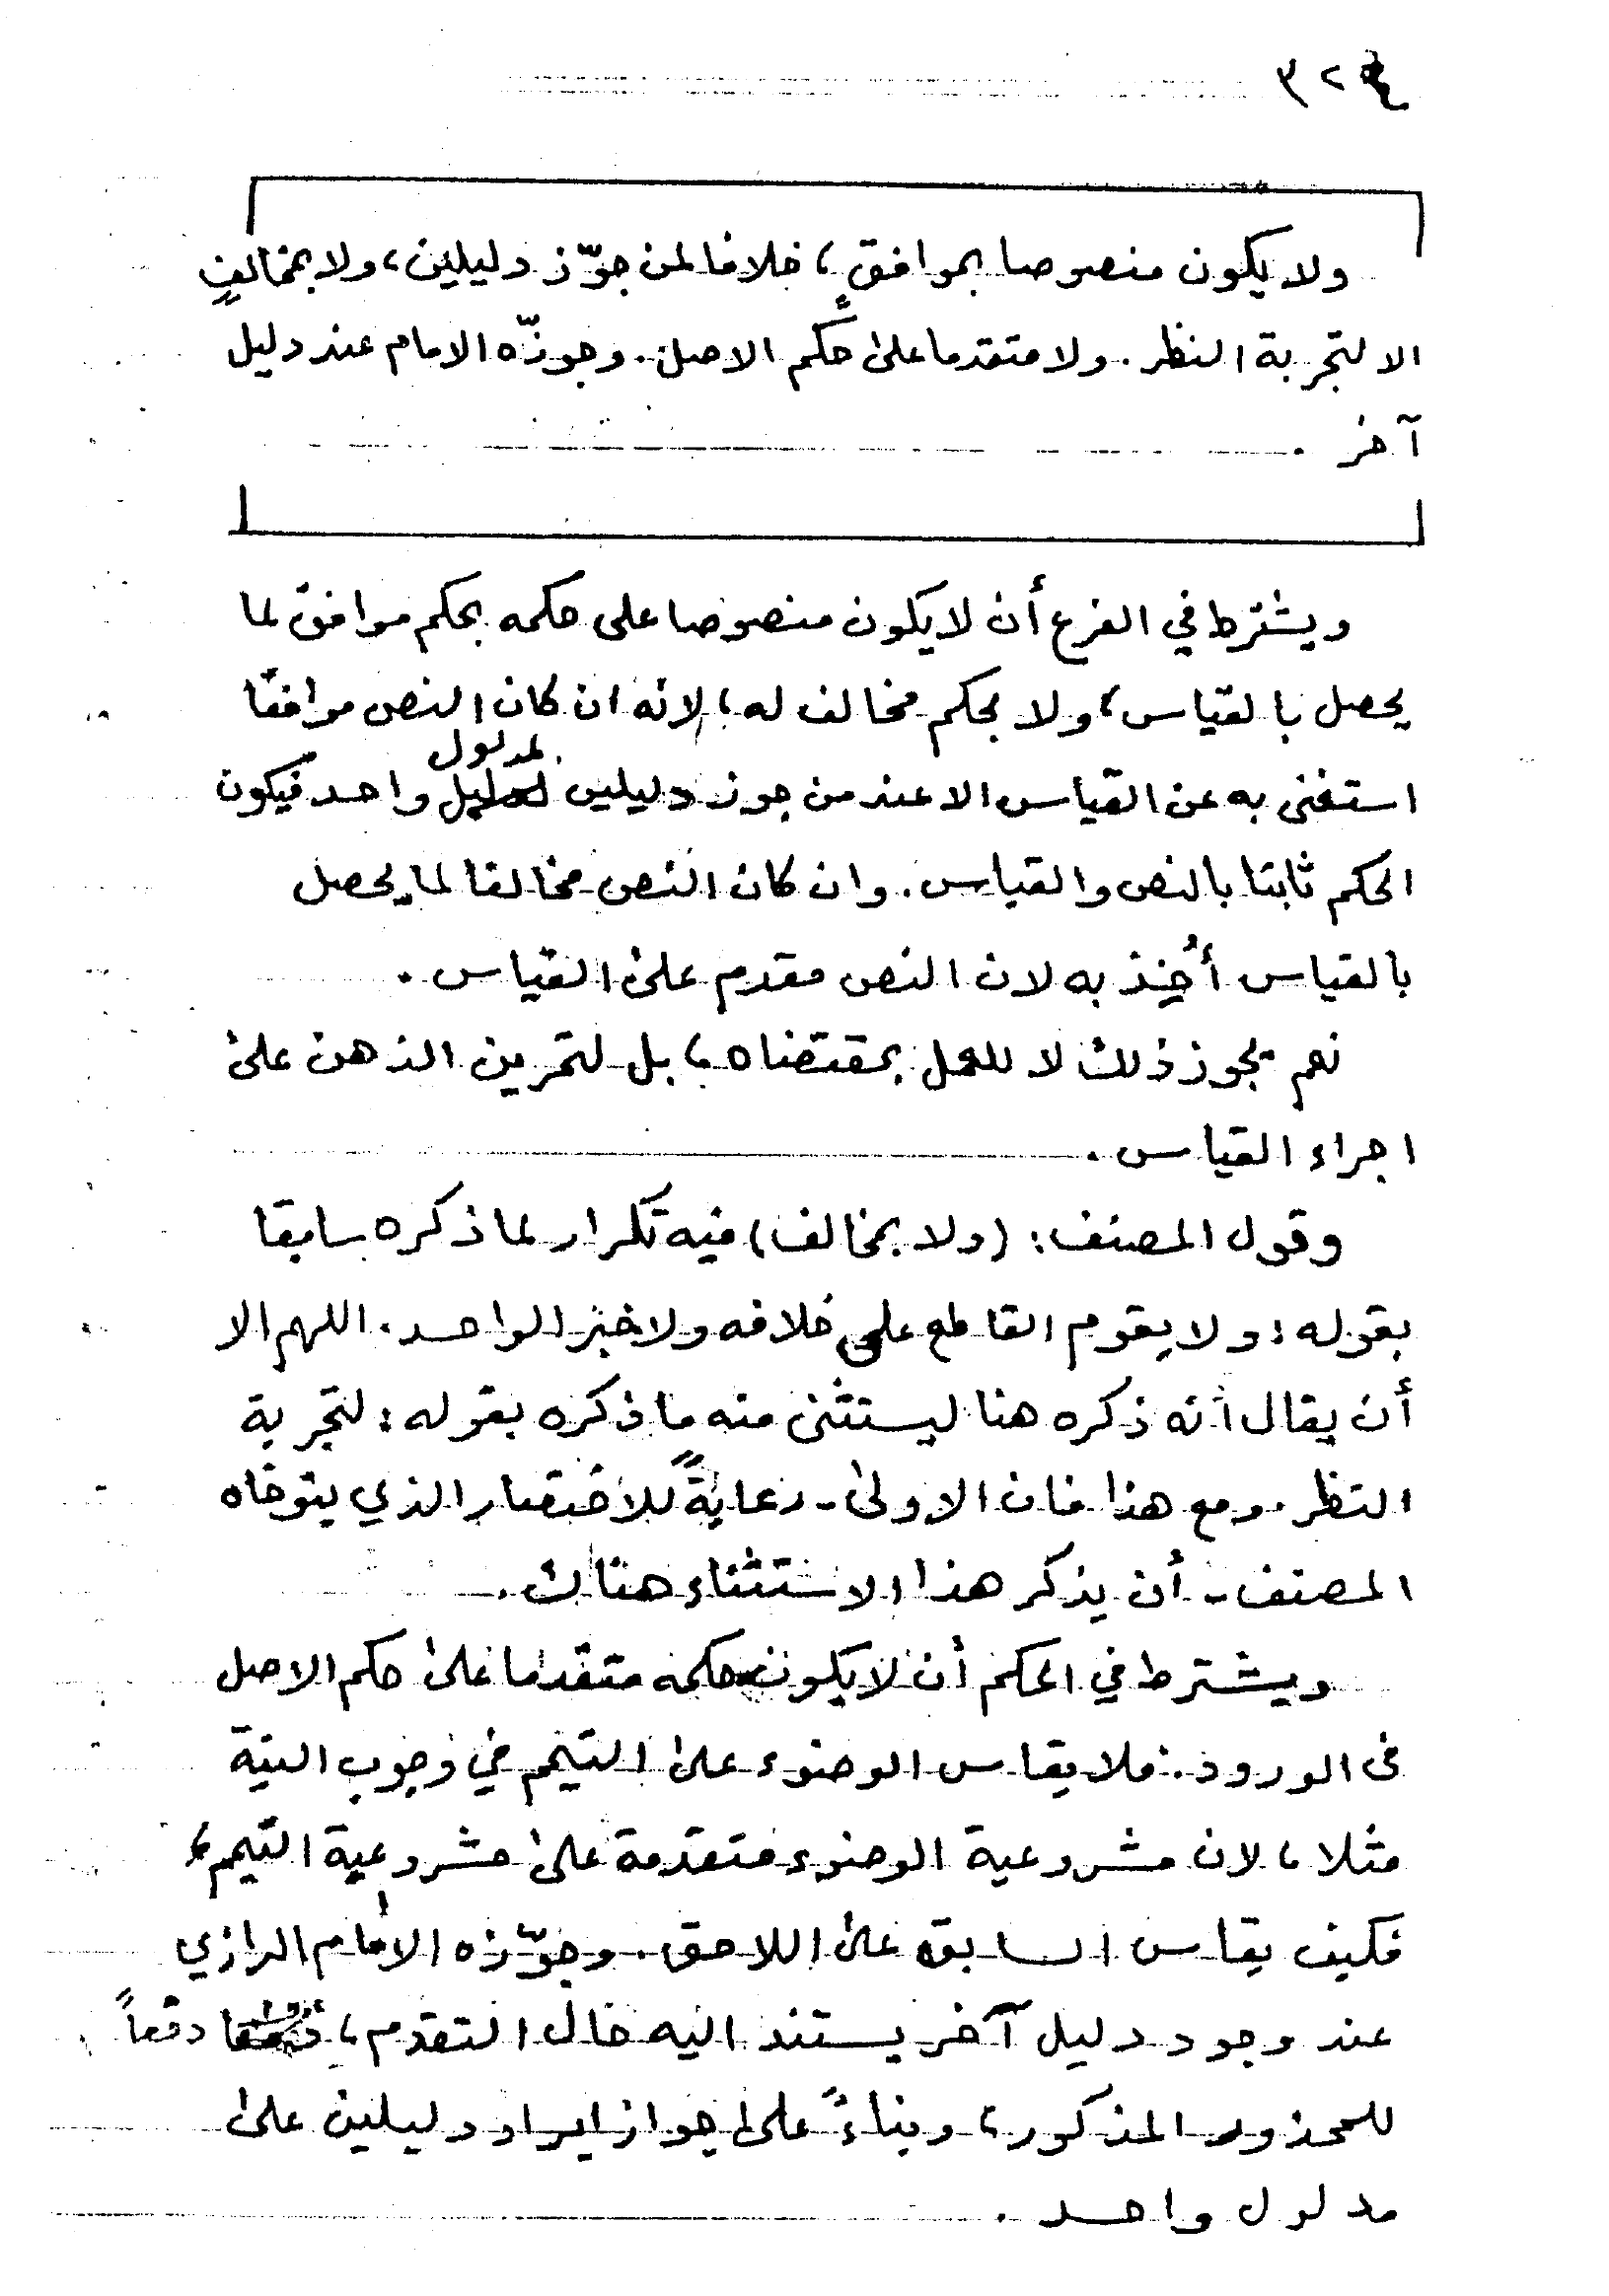 ٣٢٤
ولا يكون منصوصا بموافقٍ، خلافا لمن جوّز دليلين، ولا بمخالفٍ
الا لتجربة النظر. ولا متقدما على حكم الاصل. وجوزّه الامام عند دليل
آخر.
ويشترط في الفرع أن لا يكون منصوصا على حكمه بحكم موافق لما
يحصل بالقياس، ولا بحكم مخالف له، لانه ان كان النص موافقا
استغنى به عن القياس الا عند من جوز دليلين لمدلول واحد فيكون
الحكم ثابتا بالنص والقياس. وان كان النص مخالفا لما يحصل
بالقياس أُخِذ به لان النص مقدم على القياس.
نعم يجوز ذلك لا للعمل بمقتضاه، بل لتمرين الذهن على
اجراء القياس.
وقول المصنف: (ولا بمخالف) فيه تكرار لما ذكره سابقا
بقوله: ولا يقوم القاطع على خلافه ولا خبر الواحد. اللهم الا
أن يقال أنه ذكره هنا ليستثنى منه ما ذكره بقوله: لتجربة
النظر. ومع هذا فان الاولى - رعايةً للاختصار الذي يتوخاه
المصنف - أن يذكر هذا الاستثناء هناك.
ويشترط في الحكم أن لا يكون حكمه متقدما على حكم الاصل
فى الورود. فلا يقاس الوضوء على التيمم في وجوب النية
مثلا، لان مشروعية الوضوء متقدمة على مشروعية التيمم،
فكيف يقاس السابق على اللاحق. وجوّزه الامام الرازي
عند وجود دليل آخر يستند اليه حال التقدم، دفعاً
للمحذور المذكور، وبناءً على جواز ايراد دليلين على
مدلول واحد.